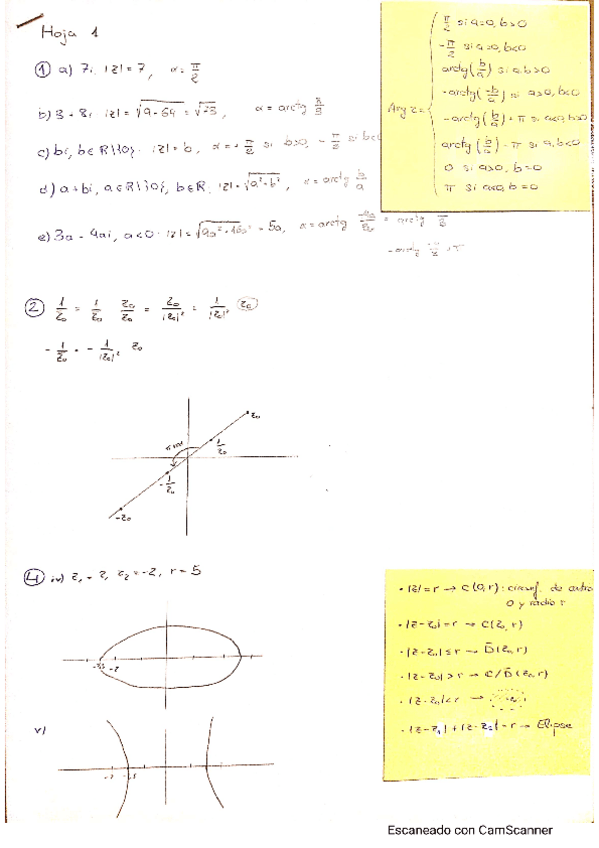 Hoja 1
① a) 7i, |z| = 7, α = π/2
b) 3 + 8i |z| = √(9+64) = √73, α = arctg 8/3
c) bi, b∈ℝ\{0}. |z| = b, α = + π/2 si b>0, - π/2 si b<0
d) a+bi, a∈ℝ\{0}, b∈ℝ, |z| = √(a²+b²), α = arctg b/a
e) 3a - 4ai, a<0 |z| = √(9a²+16a²) = 5a, α = arctg -4a/3a = arctg
-arctg + π
Arg z =
π/2 si a=0, b>0
-π/2 si a=0, b<0
arctg(b/a) si a,b>0
-arctg(-b/a) si a>0, b<0
-arctg(-b/a) + π si a<0, b>0
arctg(b/a) - π si a,b<0
0 si a>0, b=0
π si a<0, b=0
② 1/z₀ = 1/z₀ z₀/z₀ = z₀/|z₀|² = 1/|z₀|² z₀
- 1/z₀ = - 1/|z₀|² z₀
z₀
π rad
1/z₀
-1/z₀
-z₀
④ iv) z₁ = 2, z₂ = -2, r = 5
-2
v)
· |z| = r → C(0,r): circunf. de centro
0 y radio r
· |z-z₀| = r → C(z₀,r)
· |z-z₀| ≤ r → D̄(z₀,r)
· |z-z₀| > r → ℂ/D̄(z₀,r)
· |z-z₀| < r →
· |z-z₁| + |z-z₂| = r → Elipse
Escaneado con CamScanner